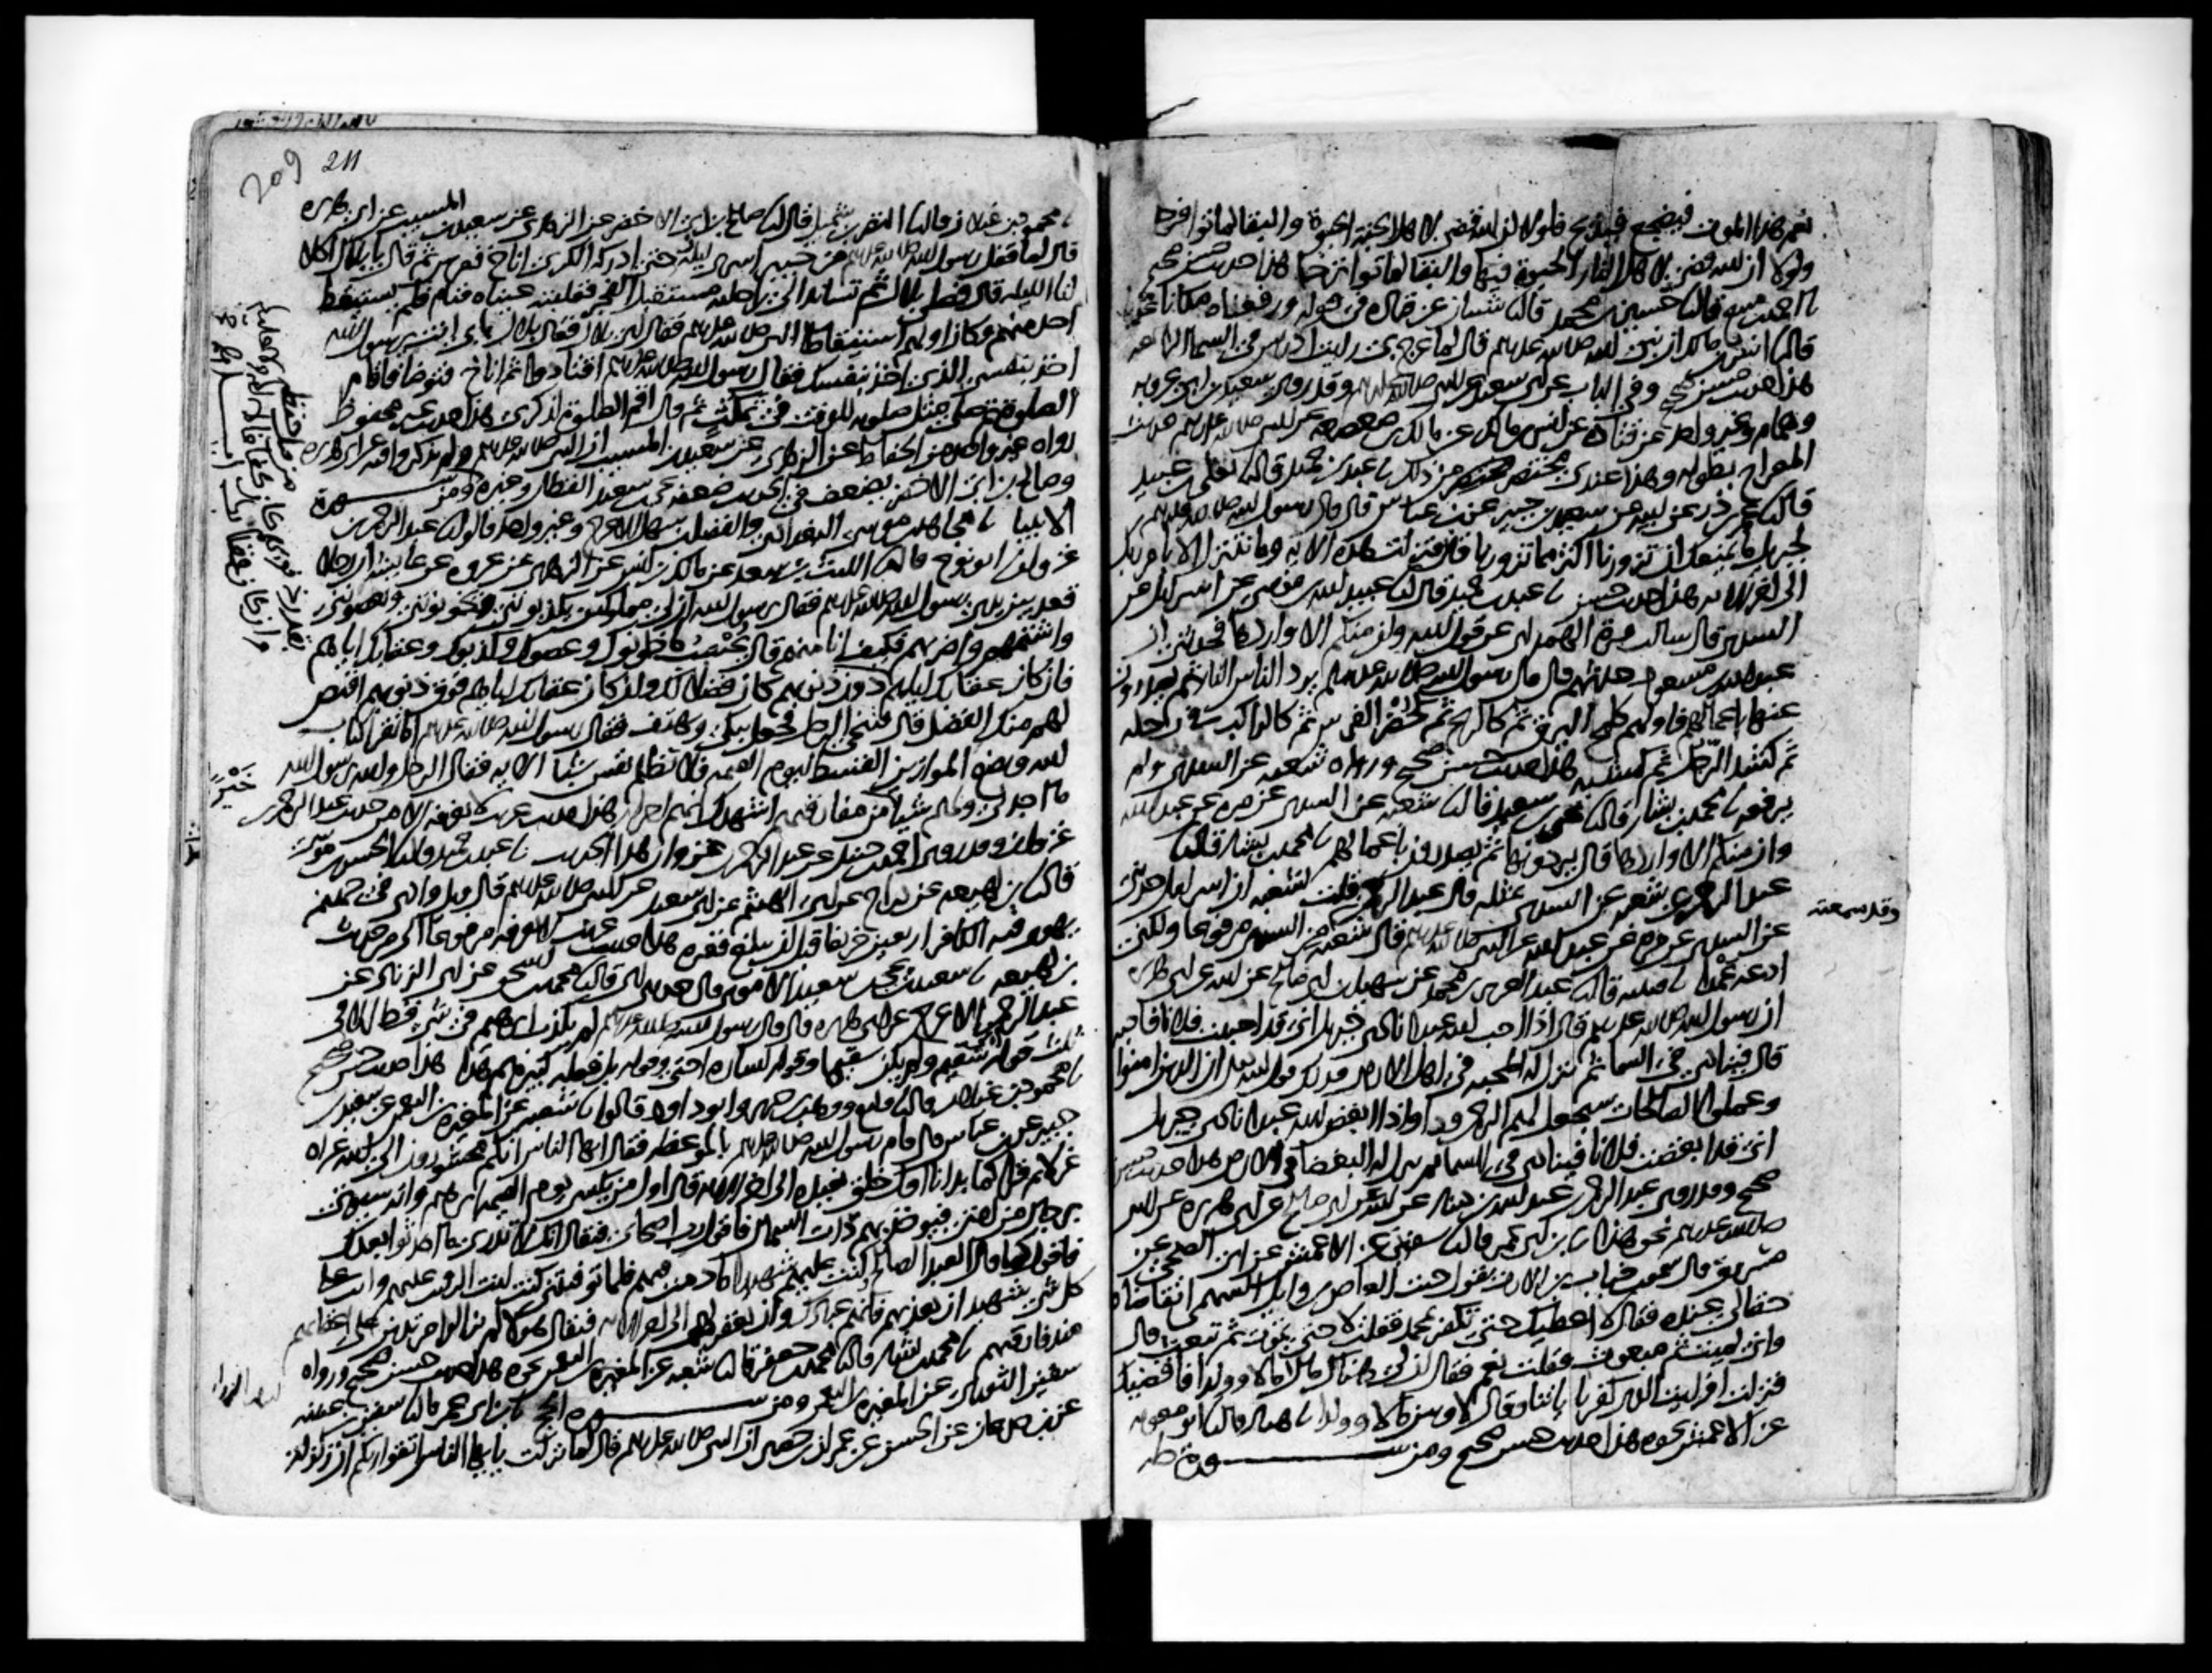 نعم هذا الموت فيضجع فيذبح فلولا ان الله قضى لاهل الجنة الحيوة والبقا لماتوا فرحا
ولولا ان الله قضى لاهل النار الحيوة فيها والبقا لماتوا ترحا هذا حديث حسن صحيح
نا احمد بن منيع قال نا حسين بن محمد قال نا شيبان عن قتادة في قوله ورفعناه مكانا عليا
قال نا انس بن مالك ان نبي الله صلى الله عليه وسلم قال لما عرج بي رايت ادريس في السما الرابعة
هذا حديث حسن صحيح وفي الباب عن ابي سعيد عن النبي صلى الله عليه وسلم وقد روى سعيد بن ابي عروبة
وهمام وغير واحد عن قتادة عن انس بن مالك عن مالك بن صعصعة عن النبي صلى الله عليه وسلم حديث
المعراج بطوله وهذا عندي مختصر من ذلك نا عبد بن حميد قال نا يعلى بن عبيد
قال نا عمر بن ذر عن ابيه عن سعيد بن جبير عن ابن عباس قال قال رسول الله صلى الله عليه وسلم
لجبريل ما يمنعك ان تزورنا اكثر مما تزورنا قال فنزلت هذه الاية وما نتنزل الا بامر ربك
الى اخر الاية هذا حديث حسن نا عبد بن حميد قال نا عبيد الله بن موسى عن اسرائيل عن
السدي قال سالت مرة الهمداني عن قول الله وان منكم الا واردها فحدثني ان
عبد الله بن مسعود حدثهم قال قال رسول الله صلى الله عليه وسلم يرد الناس النار ثم يصدرون
عنها باعمالهم فاولهم كلمح البرق ثم كالريح ثم كحضر الفرس ثم كالراكب في رحله
ثم كشد الرجل ثم كمشيه هذا حديث حسن صحيح ورواه شعبة عن السدي ولم
يرفعه نا محمد بن بشار قال نا يحيى بن سعيد قال نا شعبة عن السدي عن مرة عن عبد الله
وان منكم الا واردها قال يردونها ثم يصدرون باعمالهم نا محمد بن بشار قال نا
عبد الرحمن عن شعبة عن السدي بمثله قال عبد الرحمن قلت لشعبة ان اسرائيل حدثني
عن السدي عن مرة عن عبد الله عن النبي صلى الله عليه وسلم قال شعبة من السدي مرفوعا ولكني
وقد سمعته
ادعه عمدا نا قتيبة قال نا عبد العزيز بن محمد عن سهيل بن ابي صالح عن ابيه عن ابي هريرة
ان رسول الله صلى الله عليه وسلم قال اذا احب الله عبدا نادى جبريل اني قد احببت فلانا فاحبه
قال فينادي في السما ثم تنزل له المحبة في اهل الارض فذلك قول الله ان الذين امنوا
وعملوا الصالحات سيجعل لهم الرحمن ودا واذا ابغض الله عبدا نادى جبريل
اني قد ابغضت فلانا فينادي في السما ثم تنزل له البغضا في الارض هذا حديث حسن
صحيح وقد روى عبد الرحمن بن عبد الله بن دينار عن ابيه عن ابي صالح عن ابي هريرة عن النبي
صلى الله عليه وسلم نحو هذا نا ابن ابي عمر قال نا سفين عن الاعمش عن ابي الضحى عن
مسروق قال سمعت خباب بن الارت يقول جئت العاص بن وايل السهمي اتقاضاه
حقا لي عنده فقال لا اعطيك حتى تكفر بمحمد فقلت لا حتى تموت ثم تبعث قال
واني لميت ثم مبعوث فقلت نعم فقال ان لي هناك مالا وولدا فاقضيك
فنزلت افرايت الذي كفر باياتنا وقال لاوتين مالا وولدا نا هناد قال نا ابو معوية
عن الاعمش نحوه هذا حديث حسن صحيح ومن سورة طه
209 211
نا محمود بن غيلان قال نا النضر بن شميل قال نا صالح بن ابي الاخضر عن الزهري عن سعيد بن المسيب عن ابي هريرة
قال لما قفل رسول الله صلى الله عليه وسلم من خيبر اسرى ليلة حتى ادركه الكرى اناخ فعرس ثم قال يا بلال اكلا
لنا الليلة قال فصلى بلال ثم تساند الى راحلته مستقبل الفجر فغلبته عيناه فنام فلم يستيقظ
احد منهم وكان اولهم استيقاظا النبي صلى الله عليه وسلم فقال اي بلال فقال بلال بابي انت يا رسول الله
اخذ بنفسي الذي اخذ بنفسك فقال رسول الله صلى الله عليه وسلم اقتادوا ثم اناخ فتوضا فاقام
الصلوة ثم صلى مثل صلوته للوقت في تمكث ثم قال اقم الصلوة لذكري هذا حديث غير محفوظ
رواه غير واحد من الحفاظ عن الزهري عن سعيد بن المسيب ان النبي صلى الله عليه وسلم ولم يذكروا فيه عن ابي هريرة
وصالح بن ابي الاخضر يضعف في الحديث ضعفه يحيى بن سعيد القطان وغيره ومن سورة
الانبيا نا مجاهد بن موسى البغدادي والفضل بن سهل الاعرج وغير واحد قالوا نا عبد الرحمن بن
غزوان ابو نوح قال نا الليث بن سعد عن مالك بن انس عن الزهري عن عروة عن عايشة ان رجلا
قعد بين يدي رسول الله صلى الله عليه وسلم فقال يا رسول الله ان لي مملوكين يكذبونني ويخونونني ويعصونني
واشتمهم واضربهم فكيف انا منهم قال يحسب ما خانوك وعصوك وكذبوك وعقابك اياهم
فان كان عقابك اياهم دون ذنوبهم كان فضلا لك وان كان عقابك اياهم فوق ذنوبهم اقتص
لهم منك الفضل قال فتنحى الرجل فجعل يبكي ويهتف فقال رسول الله صلى الله عليه وسلم اما تقرا كتاب
الله ونضع الموازين القسط ليوم القيمة فلا تظلم نفس شيئا الاية فقال الرجل والله يا رسول الله
ما اجد لي ولهم شيئا من مفارقتهم اشهدك انهم احرار هذا حديث غريب لا نعرفه الا من حديث عبد الرحمن بن
خير
غزوان وقد روى احمد بن حنبل عن عبد الرحمن بن غزوان هذا الحديث نا عبد بن حميد قال نا الحسن بن موسى
قال نا ابن لهيعة عن دراج عن ابي الهيثم عن ابي سعيد عن النبي صلى الله عليه وسلم قال ويل واد في جهنم
يهوي فيه الكافر اربعين خريفا قبل ان يبلغ قعره هذا حديث غريب لا نعرفه مرفوعا الا من حديث
بن لهيعة نا سعيد بن يحيى بن سعيد الاموي قال حدثني ابي قال نا محمد بن اسحق عن ابي الزناد عن
عبد الرحمن الاعرج عن ابي هريرة قال قال رسول الله صلى الله عليه وسلم لم يكذب ابرهيم في شي قط الا في
ثلث قوله اني سقيم ولم يكن سقيما وقوله لسارة اختي وقوله بل فعله كبيرهم هذا هذا حديث حسن صحيح
نا محمود بن غيلان قال نا وكيع ووهب بن جرير وابو داود قالوا نا شعبة عن المغيرة بن النعمن عن سعيد بن
جبير عن ابن عباس قال قام رسول الله صلى الله عليه وسلم بالموعظة فقال يا ايها الناس انكم محشورون الى الله عراة
غرلا ثم قرا كما بدانا اول خلق نعيده الى اخر الاية قال اول من يكسى يوم القيمة ابرهيم وانه سيؤتى
برجال من امتي فيؤخذ بهم ذات الشمال فاقول رب اصحابي فيقال انك لا تدري ما احدثوا بعدك
فاقول كما قال العبد الصالح وكنت عليهم شهيدا ما دمت فيهم فلما توفيتني كنت انت الرقيب عليهم وانت على
كل شي شهيد ان تعذبهم فانهم عبادك وان تغفر لهم الى اخر الاية فيقال هؤلاء لم يزالوا مرتدين على اعقابهم
منذ فارقتهم نا محمد بن بشار قال نا محمد بن جعفر قال نا شعبة عن المغيرة بن النعمن نحوه هذا حديث حسن صحيح ورواه
سفين الثوري عن المغيرة بن النعمن ومن سورة الحج نا ابن ابي عمر قال نا سفين بن عيينة
عن ابن جدعان عن الحسن عن عمران بن حصين ان النبي صلى الله عليه وسلم قال لما نزلت يا ايها الناس اتقوا ربكم ان زلزلة